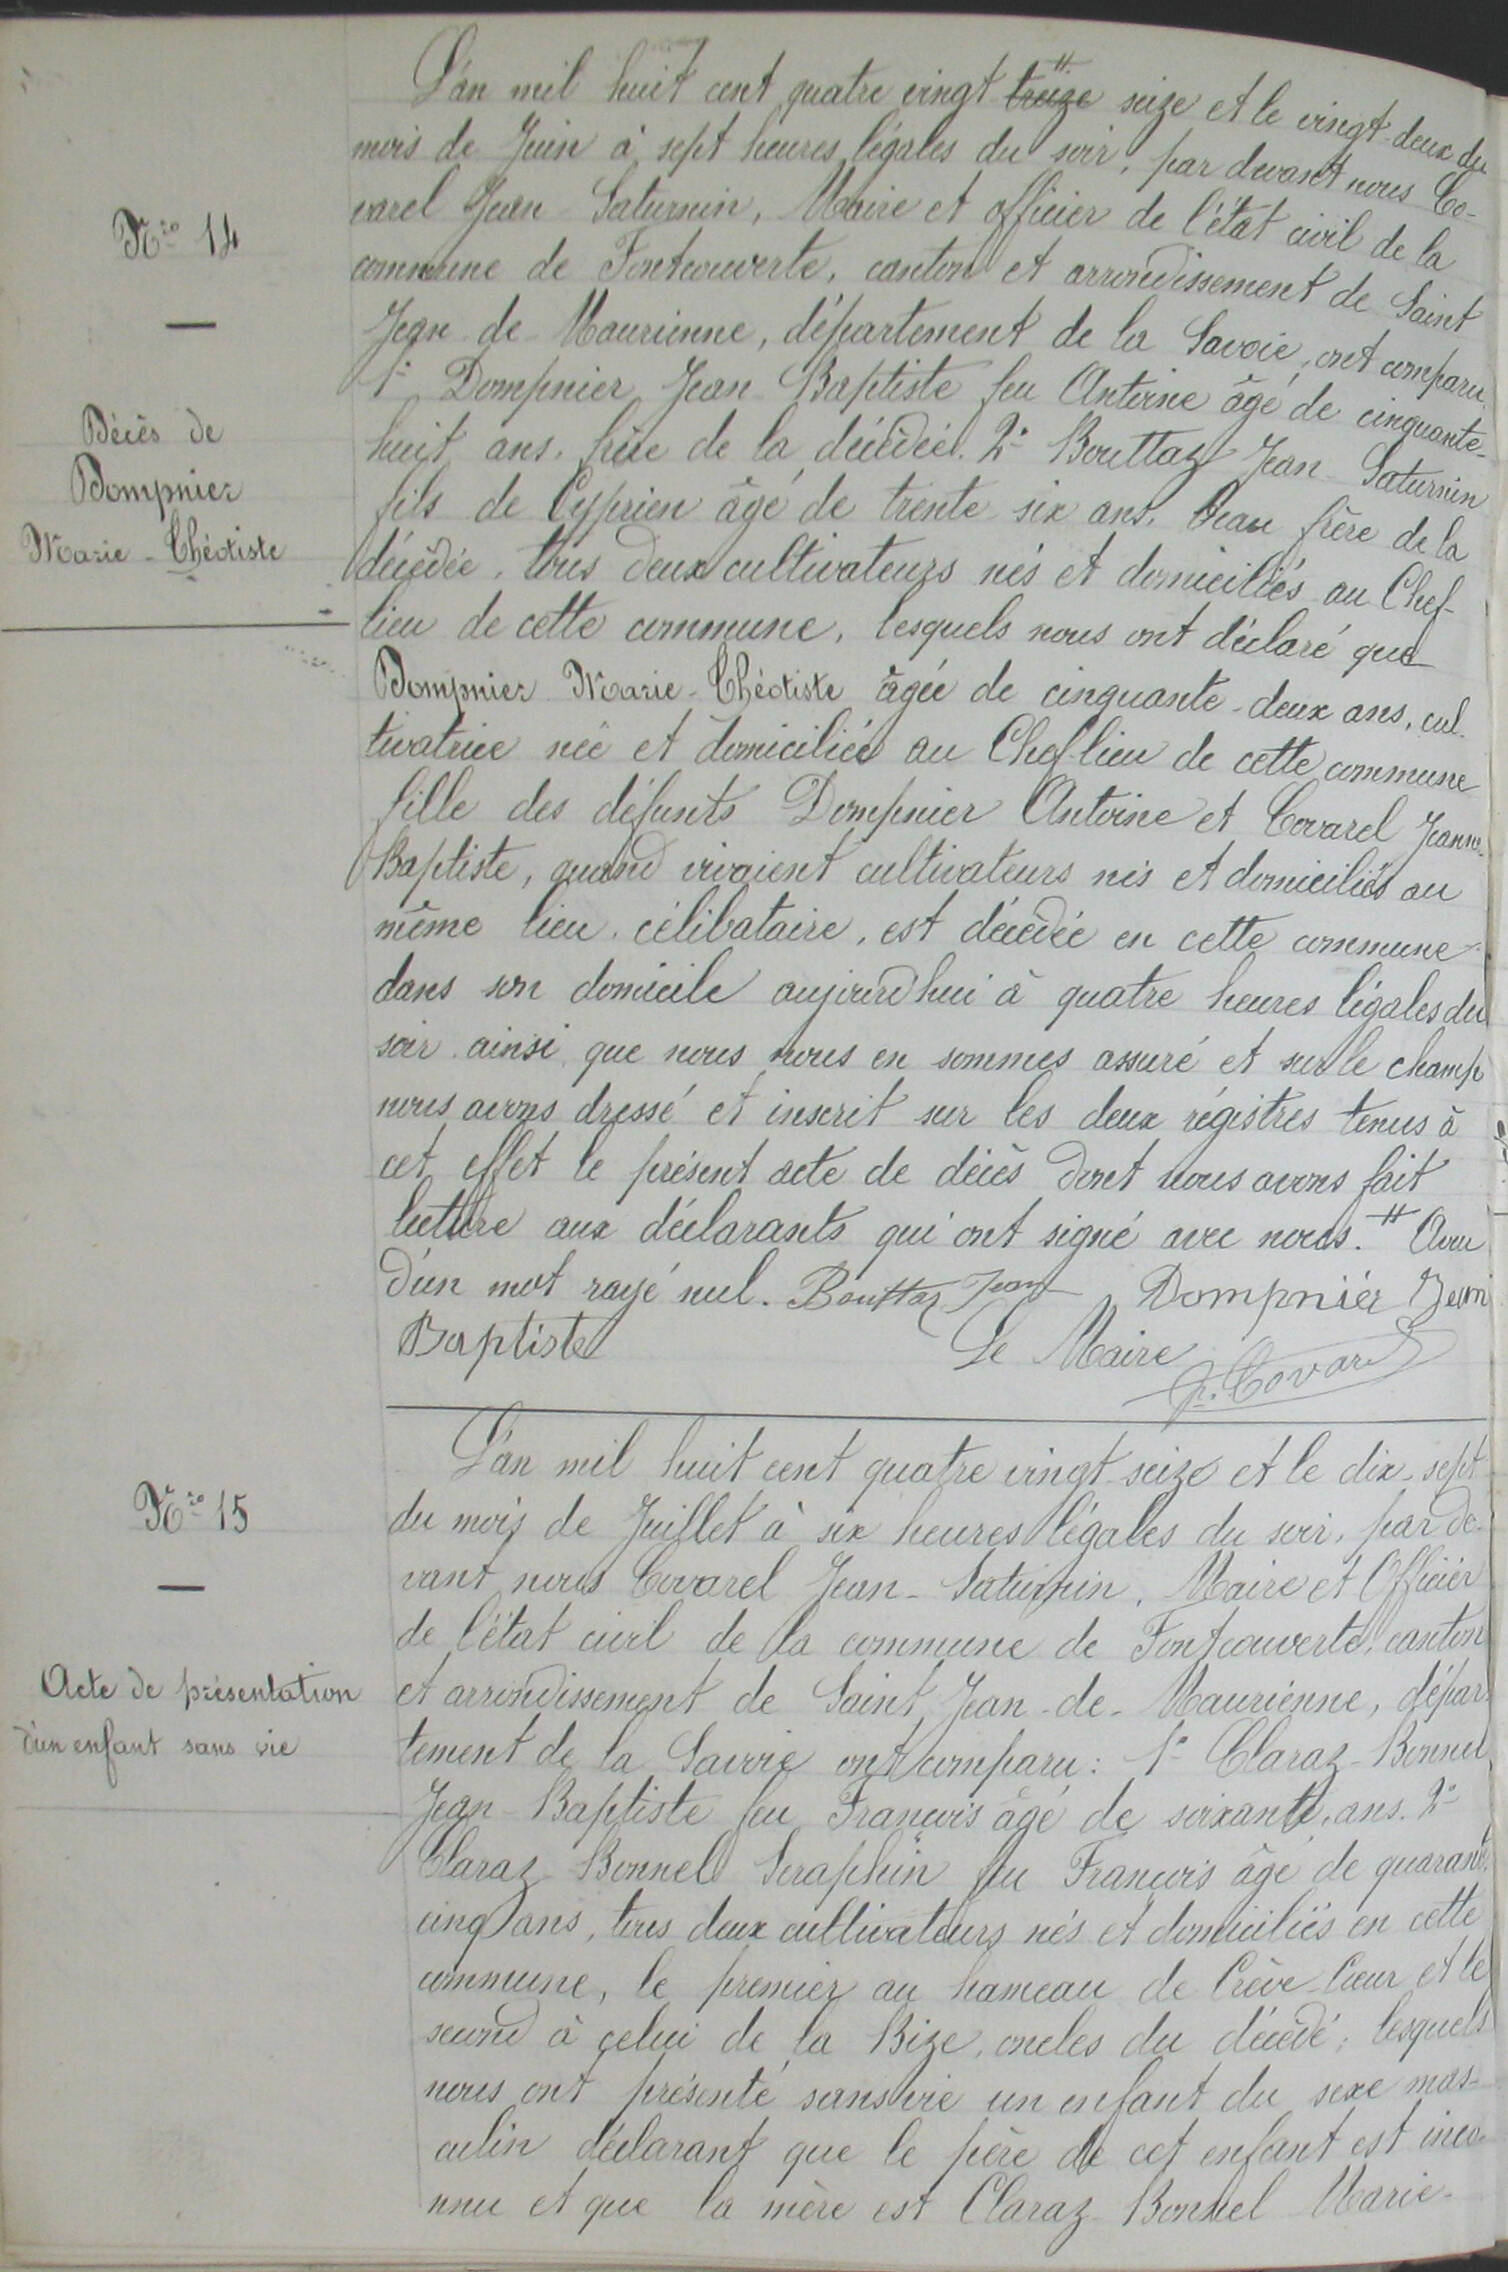 Nro 14
Décès de
Dompnier
Marie-Théotiste
L'an mil huit cent quatre vingt treize seize et le vingt-deux du
mois de Juin à sept heures légales du soir, par devant nous Co-
varel Jean Saturnin, Maire et officier de l'état civil de la
commune de Fontcouverte, canton et arrondissement de Saint
Jean-de-Maurienne, département de la Savoie, ont comparu
1° Dompnier Jean-Baptiste feu Antoine âgé de cinquante-
huit ans, frère de la décédée. 2° Bouttaz Jean Saturnin
fils de Cyprien âgé de trente six ans, beau frère de la
décédée, tous deux cultivateurs nés et domiciliés au Chef-
lieu de cette commune, lesquels nous ont déclaré que
Dompnier Marie-Théotiste âgée de cinquante-deux ans, cul-
tivatrice née et domiciliée au Chef-lieu de cette commune
fille des défunts Dompnier Antoine et Covarel Jeanne-
Baptiste, quand vivaient cultivateurs nés et domiciliés au
même lieu, célibataire, est décédée en cette commune
dans son domicile aujourd'hui à quatre heures légales du
soir ainsi que nous nous en sommes assuré et sur le champ
nous avons dressé et inscrit sur les deux régistres tenus à
cet effet le présent acte de décès dont nous avons fait
lecture aux déclarants qui ont signé avec nous. # Aveu
d'un mot rayé nul. Bouttaz Jean Dompnier Jean
Baptiste Le Maire
J. Covarel
Nro 15
Acte de présentation
d'un enfant sans vie
L'an mil huit cent quatre vingt-seize et le dix-sept
du mois de Juillet à six heures légales du soir, par de-
vant nous Covarel Jean-Saturnin, Maire et Officier
de l'état civil de la commune de Fontcouverte, canton
et arrondissement de Saint Jean-de-Maurienne, dépar-
tement de la Savoie ont comparu: 1° Claraz-Bonnel
Jean-Baptiste feu François âgé de soixante ans. 2°
Claraz-Bonnel Séraphin feu François âgé de quarante
cinq ans, tous deux cultivateurs nés et domiciliés en cette
commune, le premier au hameau de Crève-Cœur et le
second à celui de la Bize, oncles du décédé; lesquels
nous ont présenté sans vie un enfant du sexe mas-
culin déclarant que le père de cet enfant est inco-
nnu et que la mère est Claraz-Bonnel Marie-